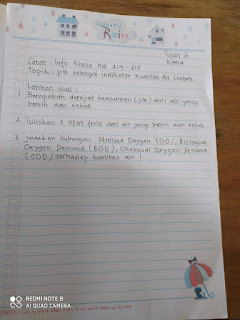 Rain
Tugas 6
KIMIA
Catat : Info Kimia hal. 214 - 215
Topik : pH sebagai indikator Kualitas Air Limbah.
Latihan soal :
1. Berapakah derajat keasaman (pH) dari air yang
bersih dan sehat
2. Tuliskan 3 sifat fisis dari air yang bersih dan sehat
3. Jelaskan hubungan Disolved Oxygen (DO), Biological
Oxygen Demand (BOD), Chemical Oxygen Demand
(COD) terhadap kualitas air !
REDMI NOTE 8
AI QUAD CAMERA